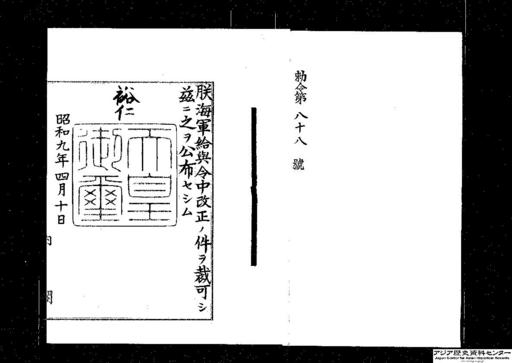 勅令第八十八號
朕海軍給與令中改正ノ件ヲ裁可シ
茲ニ之ヲ公布セシム
裕仁
天皇
御璽
昭和九年四月十日
内閣
アジア歴史資料センター
Japan Center for Asian Historical Records